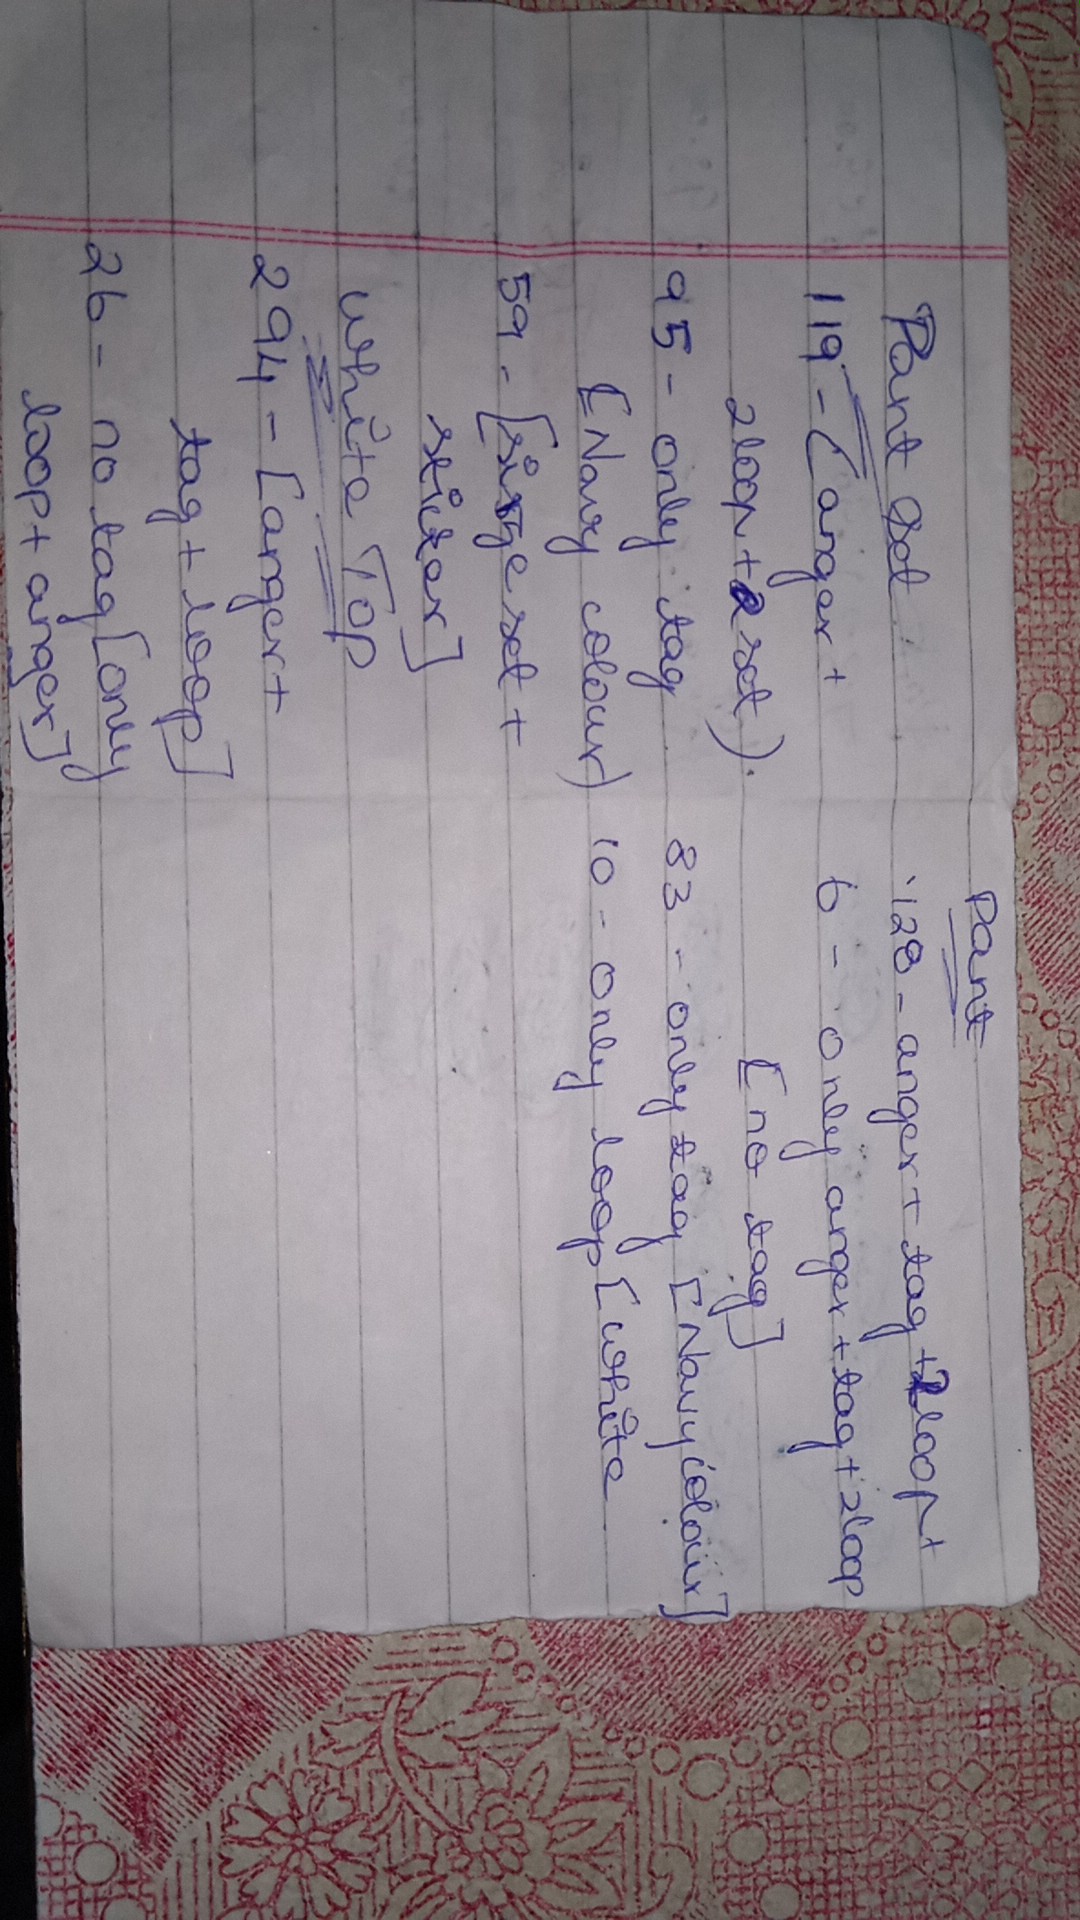 Pant set
119 - (anger +
2loop + 2 set).
95 - only tag
[Navy colour)
59 - [sizge set +
sticker]
White Top
294 - [anger +
tag + loop]
26 - no tag [only
loop + anger]
Pant
128 - anger + tag + 2loop +
6 - only anger + tag + 2loop
[no tag]
83 - only tag [Navy colour]
10 - only loop [white